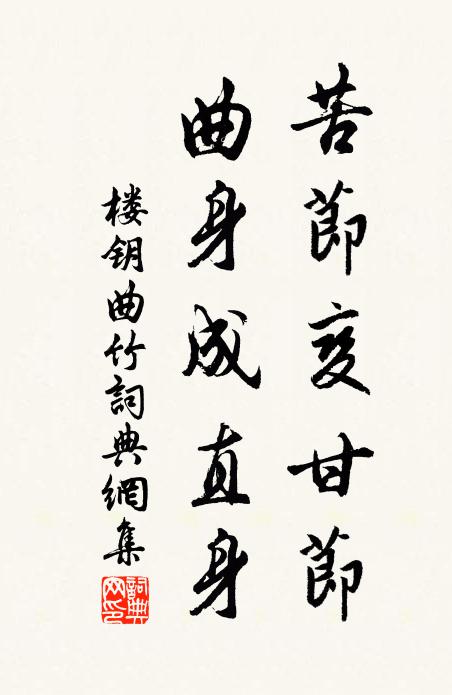 苦節变甘節
曲身成直身
楼钥曲竹詞典網集
詞典网印